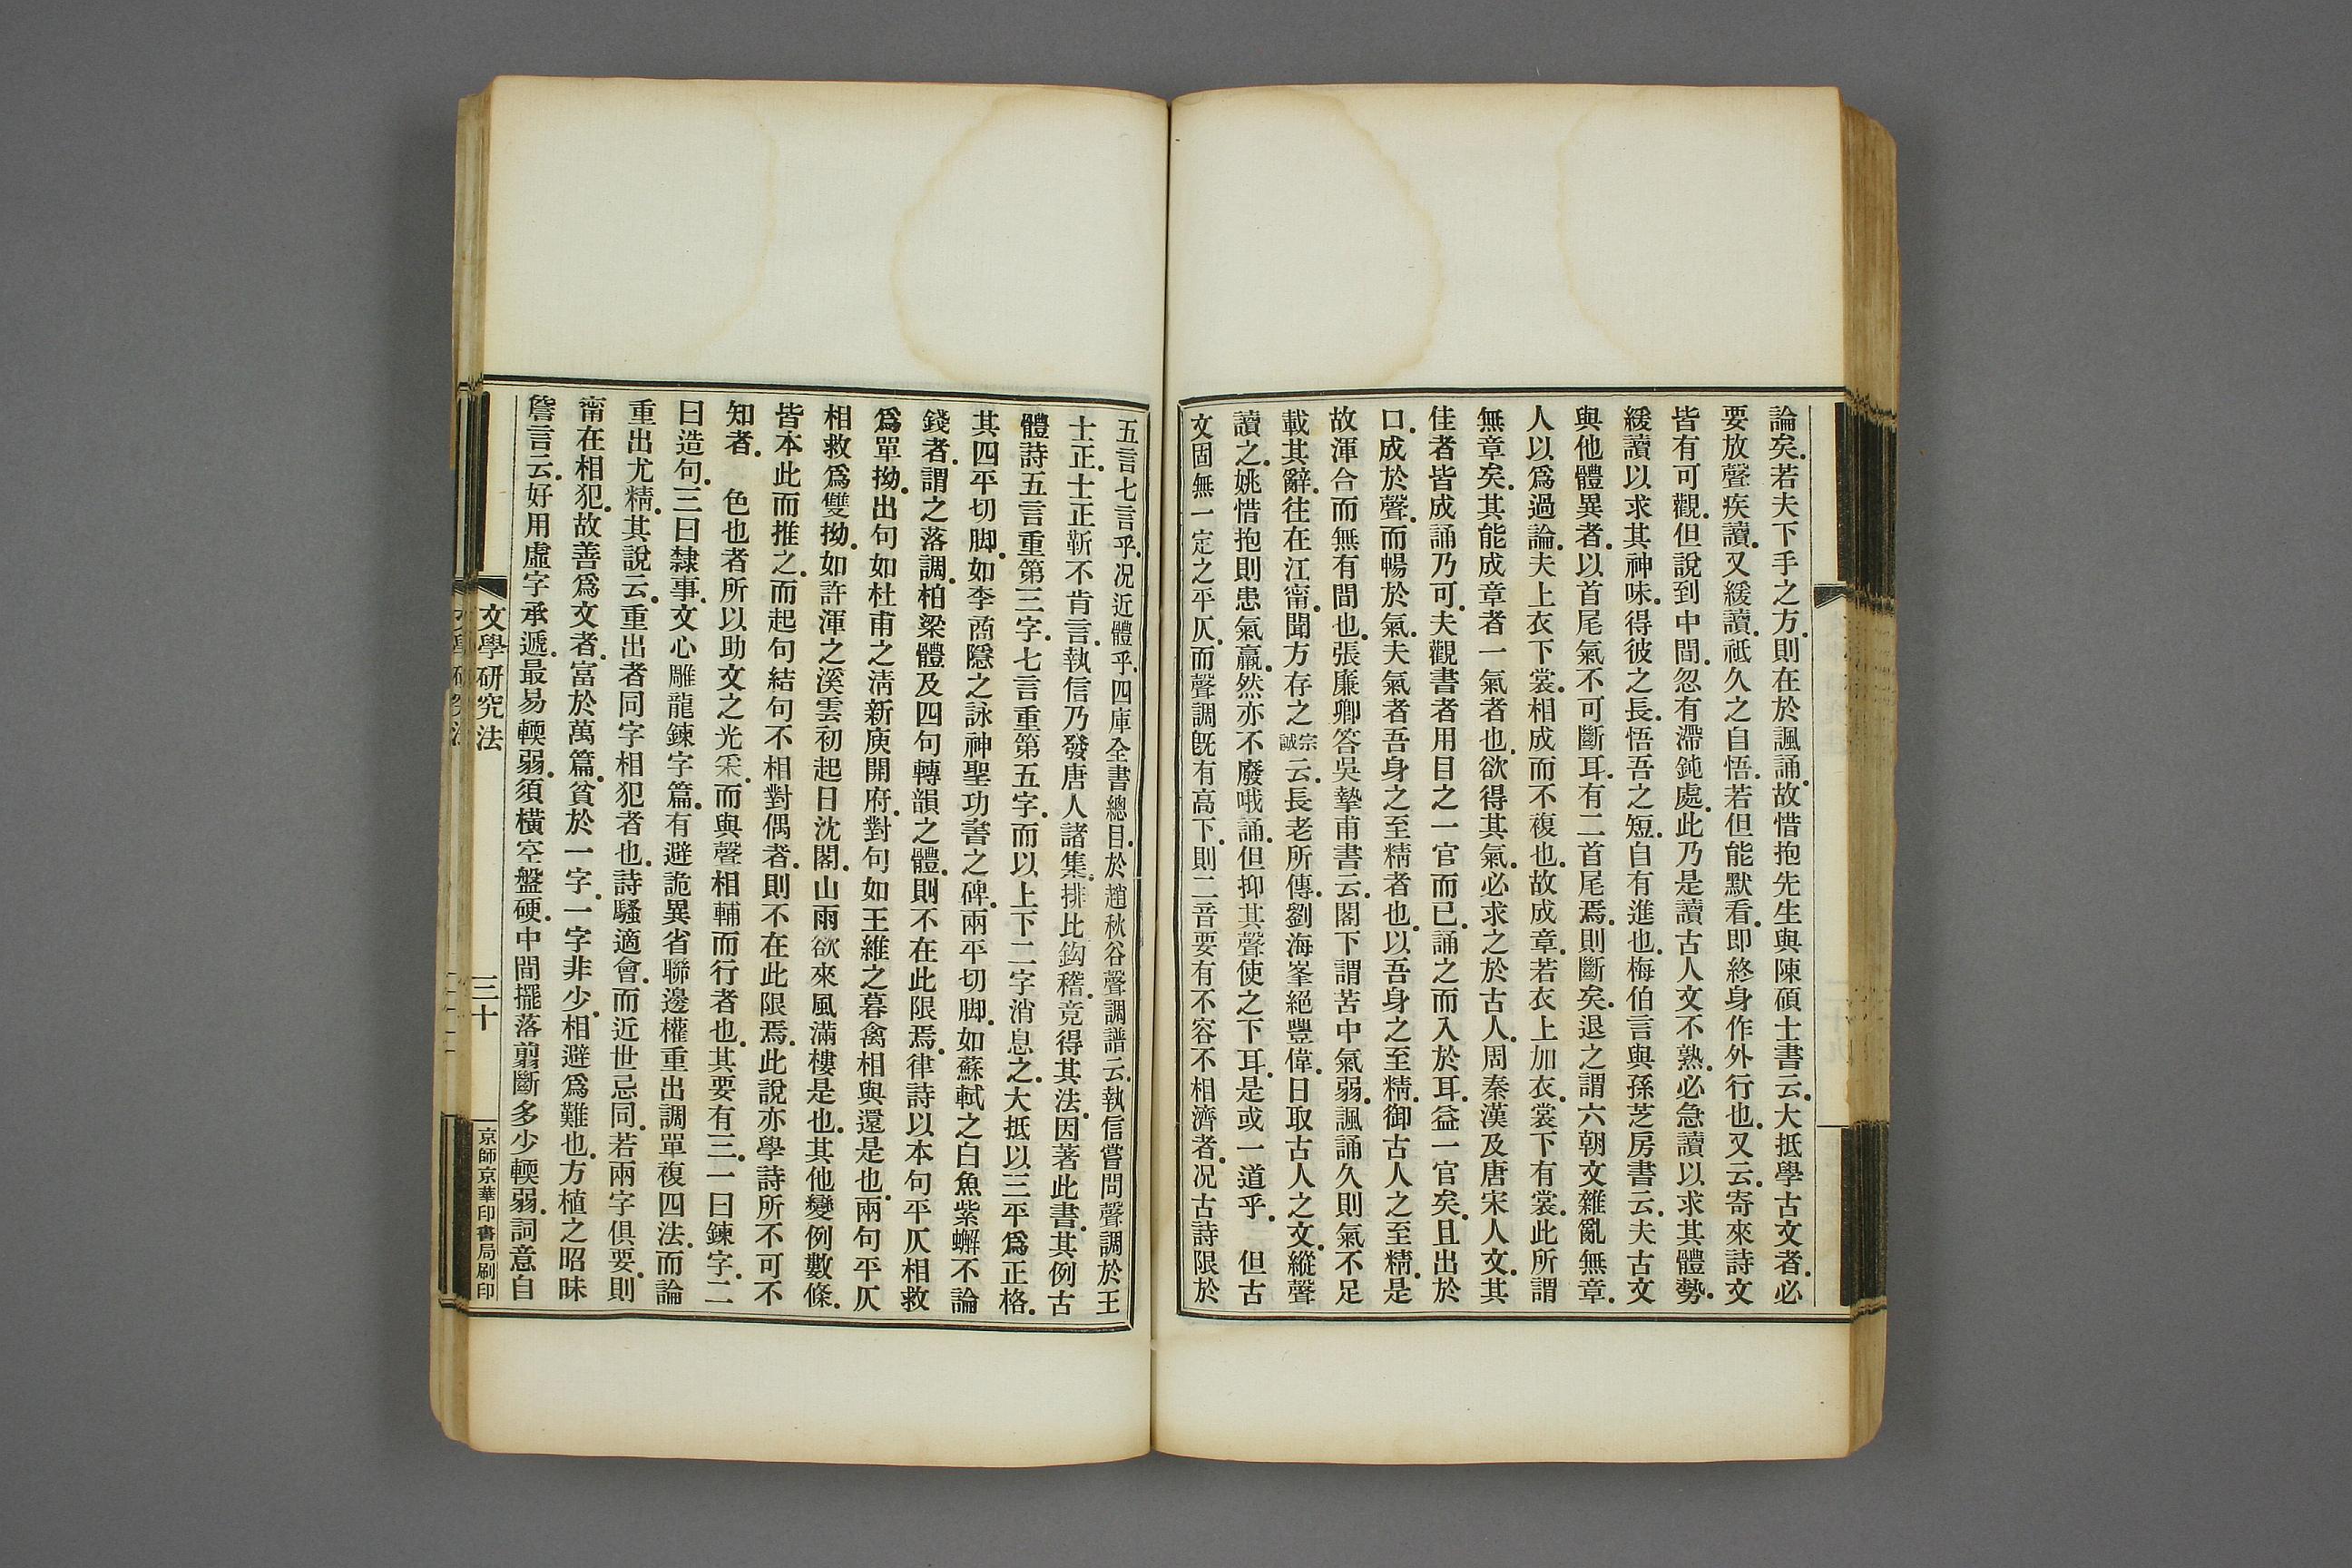 論矣.若夫下手之方.則在於諷誦.故惜抱先生與陳碩士書云.大抵學古文者.必
要放聲疾讀.又緩讀.祗久之自悟.若但能默看.即終身作外行也.又云.寄來詩文
皆有可觀.但說到中間.忽有滯鈍處.此乃是讀古人文不熟.必急讀以求其體勢.
緩讀以求其神味.得彼之長.悟吾之短.自有進也.梅伯言與孫芝房書云.夫古文
與他體異者.以首尾氣不可斷耳.有二首尾焉.則斷矣.退之謂六朝文雜亂無章.
人以爲過論.夫上衣下裳.相成而不複也.故成章.若衣上加衣.裳下有裳.此所謂
無章矣.其能成章者一氣者也.欲得其氣.必求之於古人.周秦漢及唐宋人文.其
佳者皆成誦乃可.夫觀書者用目之一官而已.誦之而入於耳.益一官矣.且出於
口.成於聲.而暢於氣.夫氣者吾身之至精者也.以吾身之至精.御古人之至精.是
故渾合而無有間也.張廉卿答吳摯甫書云.閣下謂苦中氣弱.諷誦久則氣不足
載其辭.往在江甯.聞方存之宗誠云.長老所傳.劉海峯絕豐偉.日取古人之文.縱聲
讀之.姚惜抱則患氣羸.然亦不廢哦誦.但抑其聲使之下耳.是或一道乎. 但古
文固無一定之平仄.而聲調既有高下.則二音要有不容不相濟者.况古詩限於
五言七言乎.况近體乎.四庫全書總目.於趙秋谷聲調譜云.執信嘗問聲調於王
士正.士正靳不肯言.執信乃發唐人諸集.排比鈎稽.竟得其法.因著此書.其例古
體詩五言重第三字.七言重第五字.而以上下二字消息之.大抵以三平爲正格.
其四平切脚.如李商隱之詠神聖功書之碑.兩平切脚.如蘇軾之白魚紫蠏不論
錢者.謂之落調.柏梁體及四句轉韻之體.則不在此限焉.律詩以本句平仄相救
爲單拗.出句如杜甫之淸新庾開府.對句如王維之暮禽相與還是也.兩句平仄
相救爲雙拗.如許渾之溪雲初起日沈閣.山雨欲來風滿樓是也.其他變例數條.
皆本此而推之.而起句結句不相對偶者.則不在此限焉.此說亦學詩所不可不
知者. 色也者所以助文之光采.而與聲相輔而行者也.其要有三.一曰鍊字.二
曰造句.三曰隸事.文心雕龍鍊字篇.有避詭異省聯邊權重出調單複四法.而論
重出尤精.其說云.重出者同字相犯者也.詩騷適會.而近世忌同.若兩字俱要.則
甯在相犯.故善爲文者.富於萬篇.貧於一字.一字非少.相避爲難也.方植之昭昧
詹言云.好用虛字承遞.最易輭弱.須橫空盤硬.中間擺落翦斷多少輭弱.詞意自
文學研究法
三十
京師京華印書局刷印